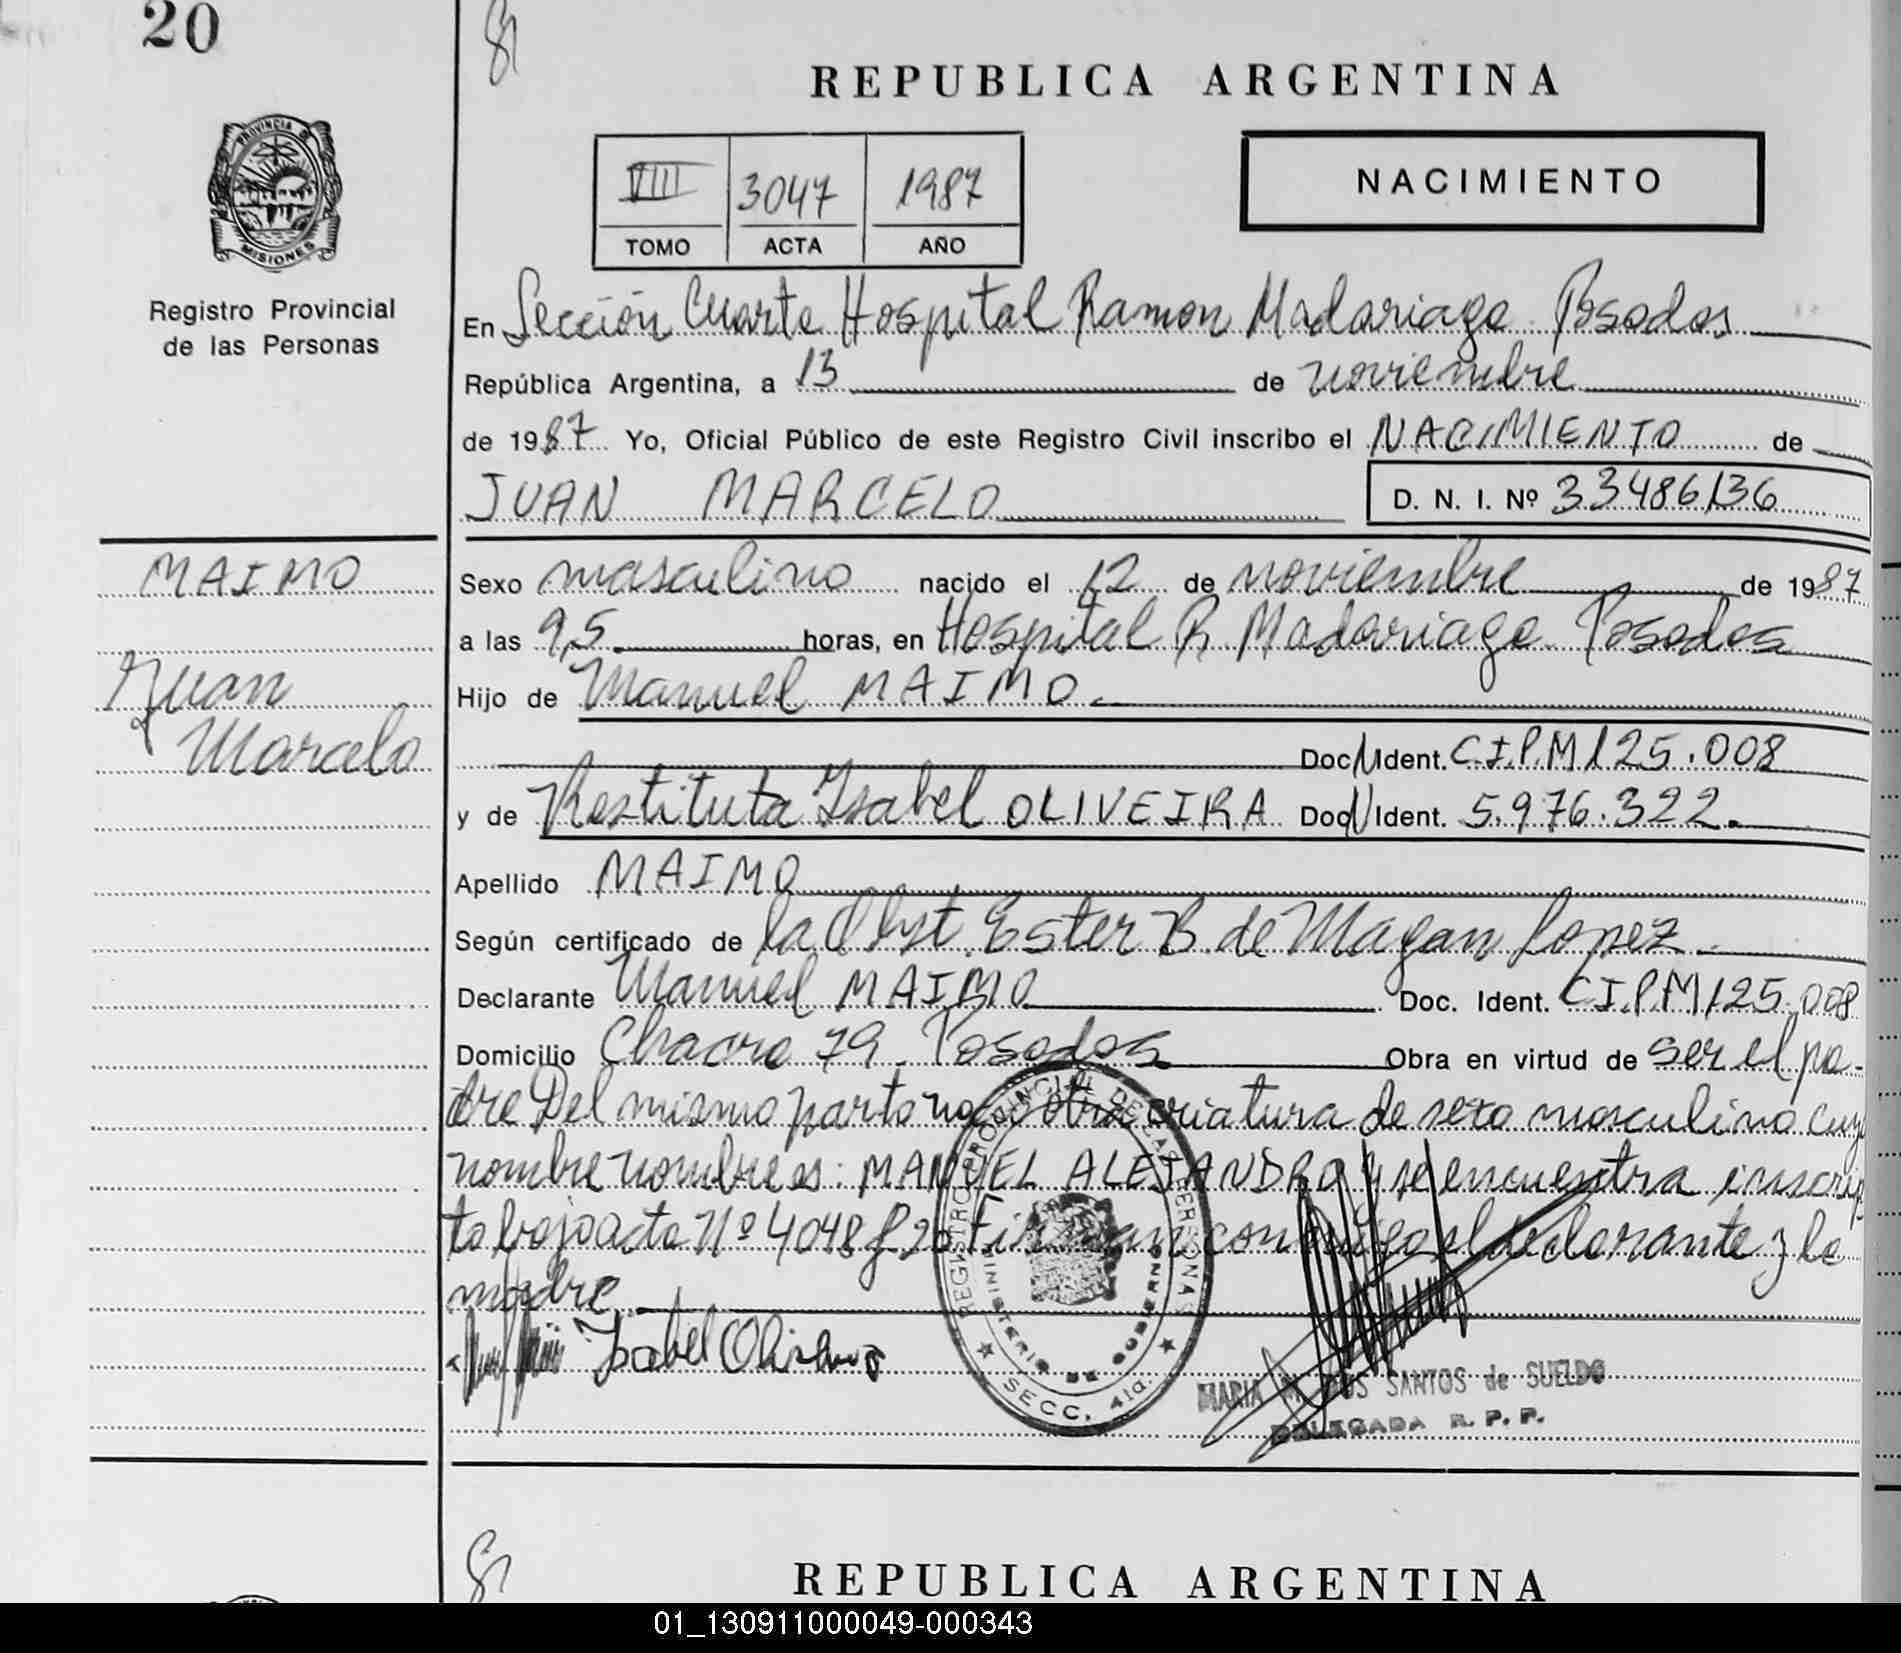 20
REPUBLICA ARGENTINA
PROVINCIA D
MISIONES
Registro Provincial
de las Personas
VIII 3047 1987
TOMO ACTA AÑO
NACIMIENTO
En Sección Cuarta Hospital Ramon Madariaga Posadas
República Argentina, a 13 de noviembre
de 1987 Yo, Oficial Público de este Registro Civil inscribo el NACIMIENTO de
JUAN MARCELO D. N. I. Nº 33486136
MAIMO
Juan
Marcelo
Sexo masculino nacido el 12 de noviembre de 1987
a las 9,5 horas, en Hospital R. Madariaga Posadas
Hijo de Manuel MAIMO.
Doc N Ident. C.I.P.M 125.008
y de Restituta Isabel OLIVEIRA Doc N Ident. 5.976.322.
Apellido MAIMO
Según certificado de la Obst. Ester B. de Magan Lopez
Declarante Manuel MAIMO Doc. Ident. C.I.P.M 125.008
Domicilio Chacra 79 Posadas Obra en virtud de ser el pa-
dre Del mismo parto otra criatura de sexo masculino cuyo
nombre nombre es: MANUEL ALEJANDRO y se encuentra inscrip
to bajo acta Nº 4048 f 20 Firman conmigo el declarante y la
madre.
Isabel Oliveira
REGISTRO PROVINCIAL DE LAS PERSONAS
MINISTERIO DE GOBIERNO
SECC. 4ta.
MARIA DOS SANTOS de SUELDO
DELEGADA R. P. P.
REPUBLICA ARGENTINA
01_130911000049-000343